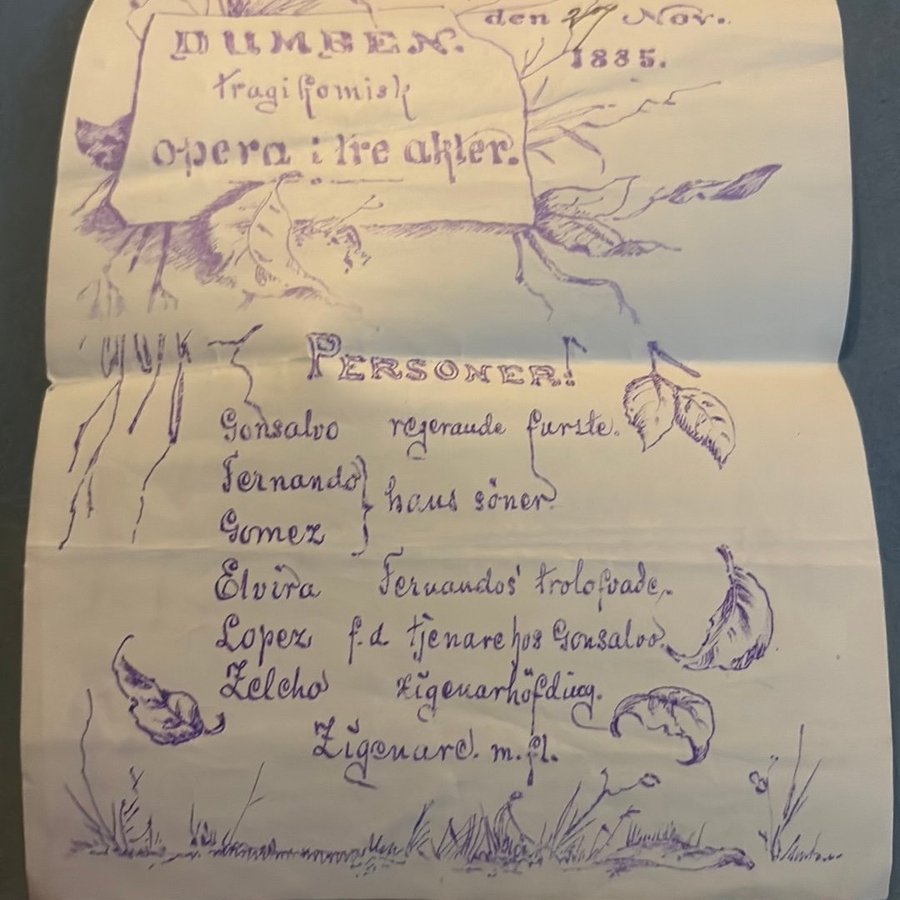 DUMBEN.
den Nov.
1885.
tragikomisk
opera i tre akter.
PERSONER!
Gonsalvo regerande furste.
Fernando
hans söner.
Gomez
Elvira Fernandos' trolofvade.
Lopez f.d. tjenare hos Gonsalvo
Zelcho zigenarhöfding.
Zigenare. m.fl.